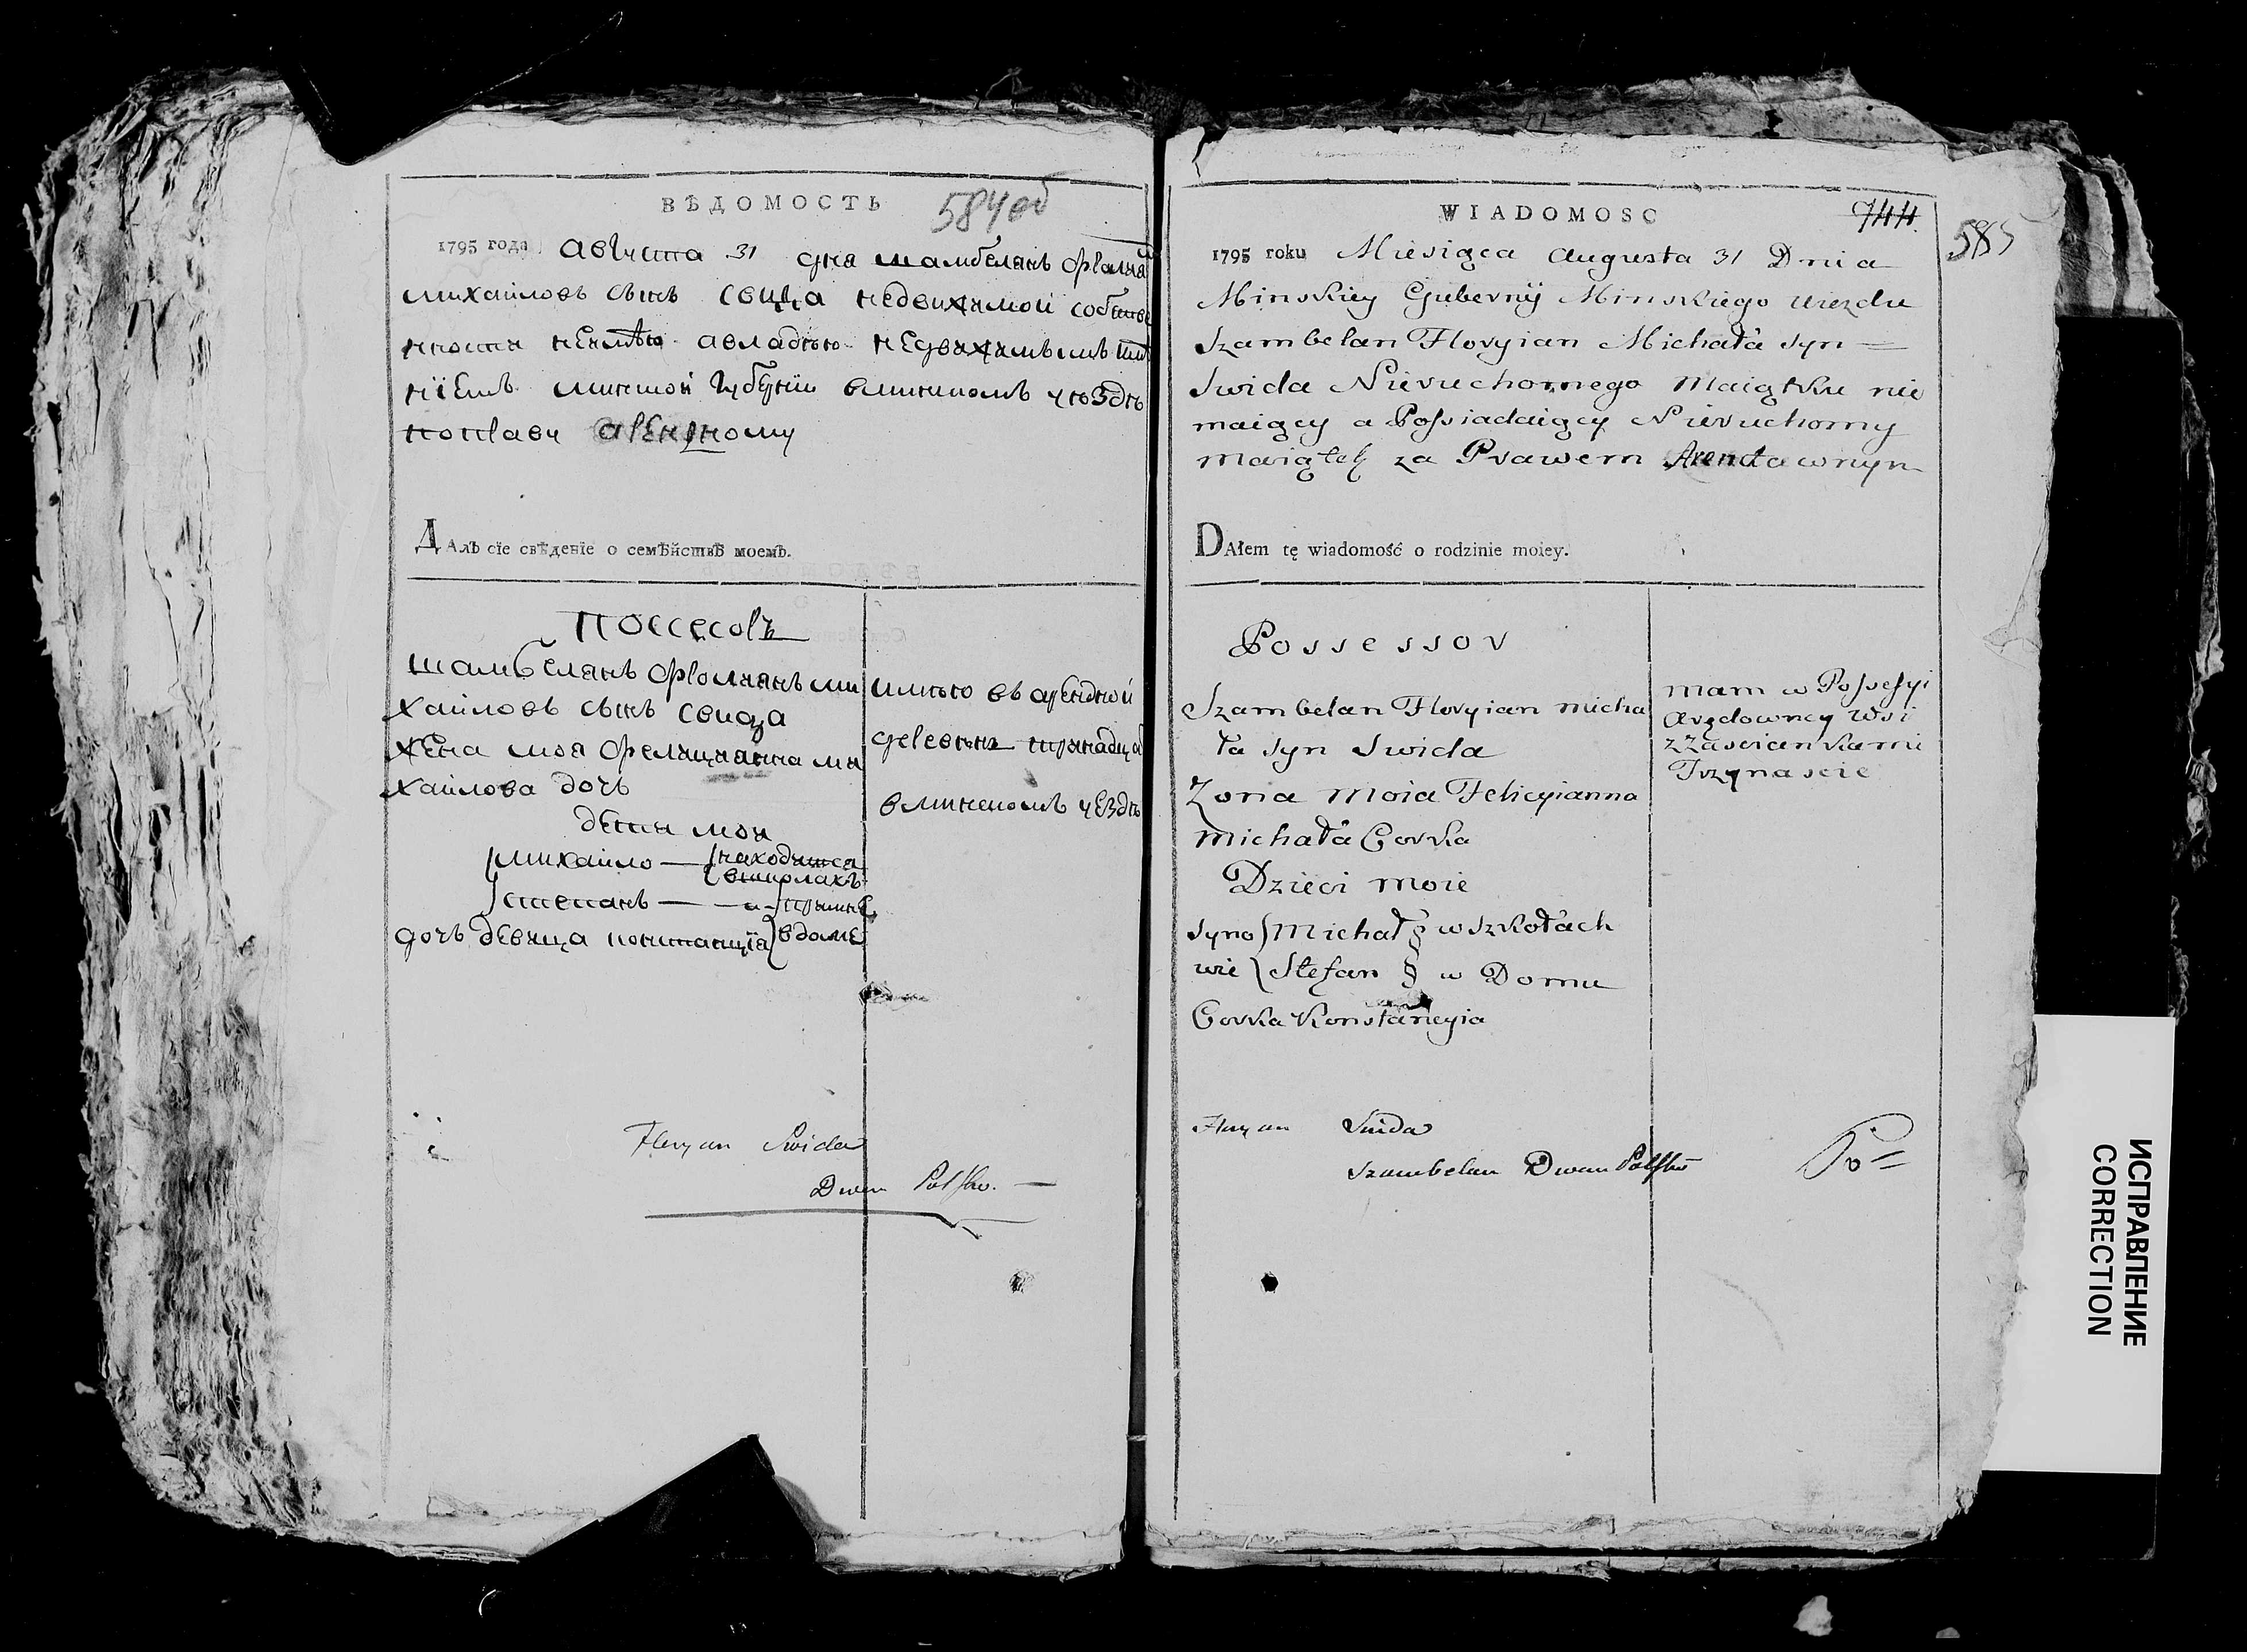 ВѢДОМОСТЬ
584об
1795 года Августа 31 дня шамбелянъ Флорианъ
михайловъ сынъ свида недвижимой собстве
нности неимѣю авладѣю недвижимымъ имѣ
нїемъ минской губернїи вминскомъ уѣздѣ
поправу арендному
ДАлъ сїе свѣденїе о семѣйствѣ моемъ.
поссесоръ
шамбелянъ Флориянъ ми
хайловъ сынъ свида
жена моя Фелицианна ми
хайлова дочь
дети мои
михайло — находитса
вшколахъ
степанъ — и при мнѣ
дочь девица констанцїа вдоме
имѣю въ арендной
деревнь тринадцать
вминскомъ уѣздѣ
Floryan Swida
Dworu Polsko. —
WIADOMOSC
744
585
1795 roku Miesiąca Augusta 31 Dnia
Minskiey Gubernij Minskiego uiezdu
Szambelan Floryian Michała syn
Swida Nieruchomego Maiątku nie
maiący a Possiadaiący Nieruchomy
Maiątek za Prawem Arendawnym
DAłem tę wiadomość o rodzinie moiey.
Possessor
Szambelan Floryian micha
ła syn Swida
Zona Moia Felicyianna
Michała Corka
Dzieci moie
syno Michał w szkołach
wie Stefan w Domu
Corka Konstancyia
mam w Possessyi
Arędowney Wsi
z Zasciankami
Trzynascie
Floryan Swida
Szambelan Dworu Polsko
ИСПРАВЛЕНИЕ
CORRECTION